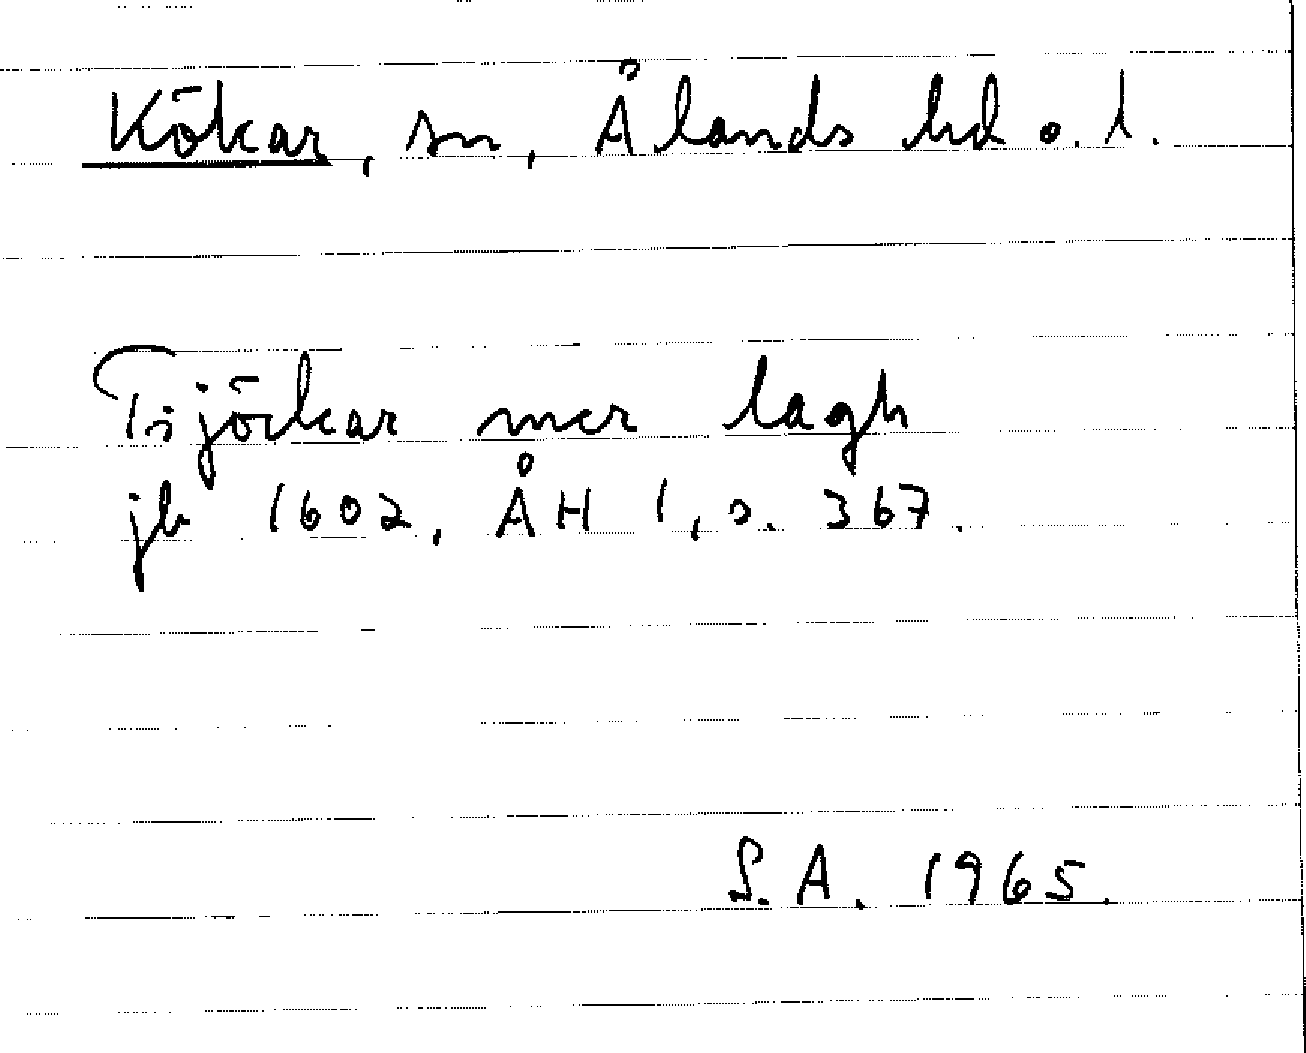 Kökar, sn, Ålands hd o. l.
Tijörkar mer lagh
jb 1602, ÅH 1, s. 367.
S.A. 1965.